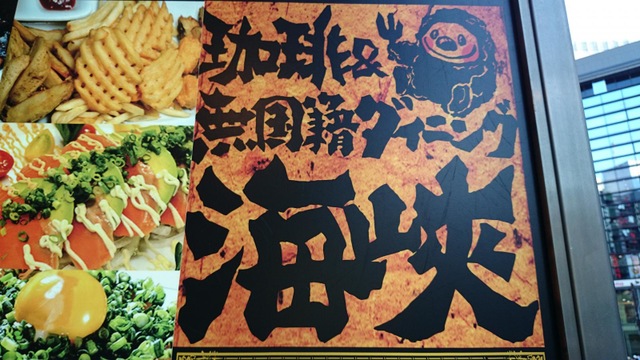 珈琲&
無国籍ダイニング
海峡